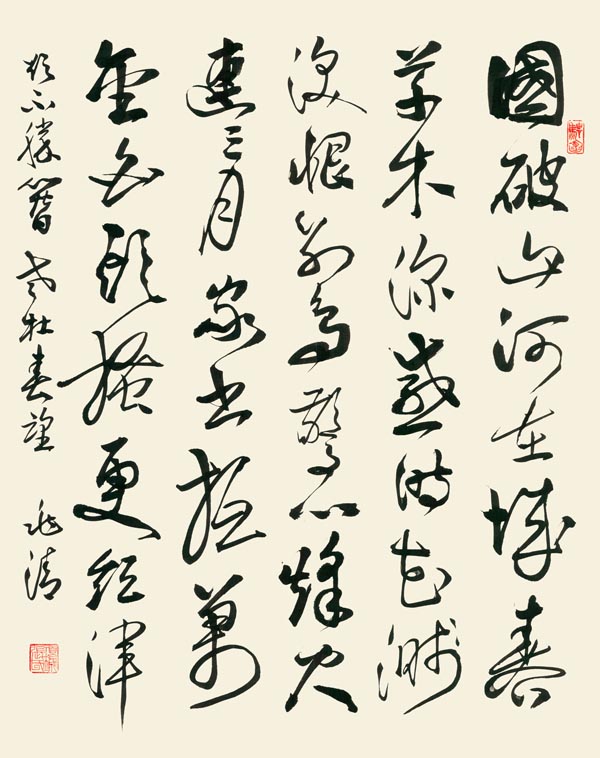 國破山河在城春
草木深感時花濺
淚恨別鳥驚心烽火
連三月家書抵萬
金白頭搔更短渾
欲不勝簪 老杜春望 兆清